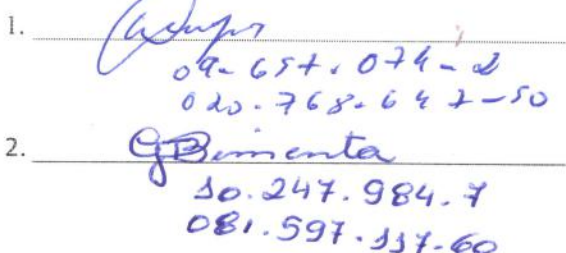 1.
09-657.074-2
020.768.647-50
2. GBimenta
10.247.984.7
081.597.117-60